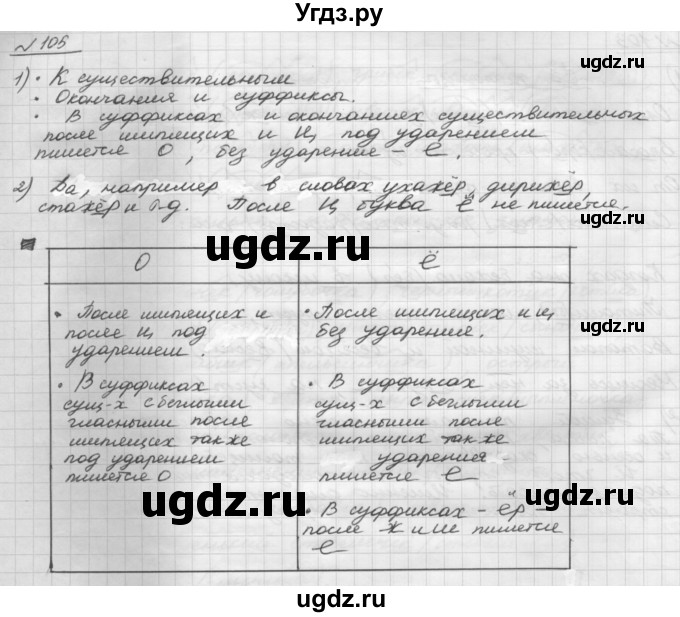 Угдз.ру
№ 105
1) • К существительным
• Окончания и суффиксы.
• В суффиксах и окончаниях существительных
после шипящих и ц под ударением
пишется О, без ударение – е.
2) Да, например – в словах ухажёр, дирижёр,
стажёр и т.д. После ц буква ё не пишется.
О
Ё
• После шипящих и
после ц под
ударением.
• В суффиксах
сущ-х с беглыми
гласными после
шипящих также
под ударением
пишется О
• После шипящих и ц
без ударения.
• В суффиксах
сущ-х с беглыми
гласными после
шипящих также
ударения -
пишется е
• В суффиксах - ёр -
после ж и ш пишется
ё
ugdz.ru
ugdz.ru
ugdz.ru
ugdz.ru
ugdz.ru
ugdz.ru
ugdz.ru
ugdz.ru
ugdz.ru